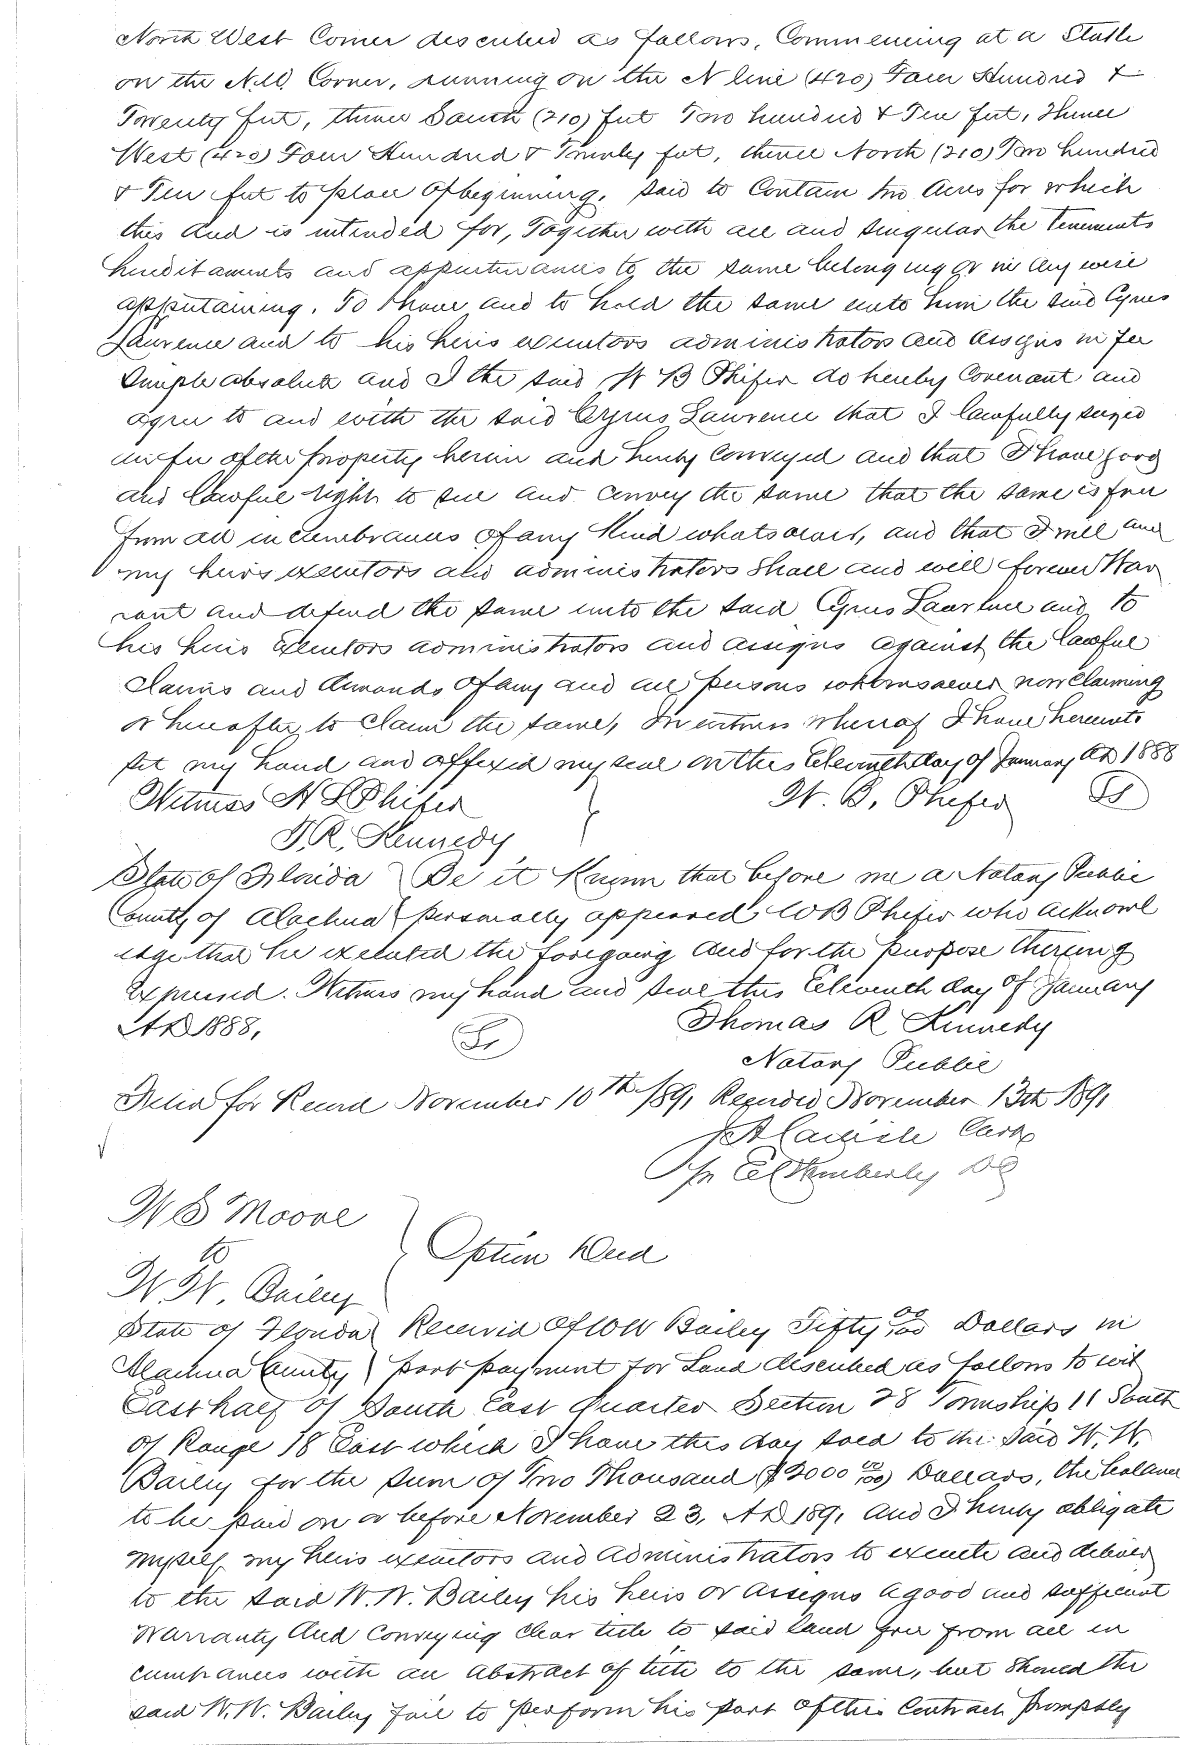 North West Corner described as follows, Commencing at a Stake
on the N.W. Corner, running on the N line (420) Four Hundred &
Twenty feet, thence South (210) feet Two hundred & Ten feet, thence
West (420) Four Hundred & Twenty feet, thence North (210) Two hundred
& Ten feet to place of beginning, said to Contain two Acres for which
this deed is intended for, Together with all and singular the tenements
hereditaments and appurtenances to the same belonging or in any wise
appertaining. To have and to hold the same unto him the said Cyrus
Lawrence and to his heirs executors administrators and assigns in fee
Simple absolute and I the said W B Phifer do hereby Covenant and
agree to and with the said Cyrus Lawrence that I lawfully seized
in fee of the property herein and hereby Conveyed and that I have good
and lawful right to sell and convey the same that the same is free
from all incumbrances of any kind whatsoever, and that I will and
my heirs executors and administrators shall and will forever War
rant and defend the same unto the said Cyrus Lawrence and to
his heirs Executors administrators and assigns against the lawful
Claims and demands of any and all persons whomsoever now Claiming
or hereafter to Claim the same, In witness whereof I have hereunto
set my hand and affixed my seal on this Eleventh day of January AD 1888
Witness H L Phifer } W. B. Phifer Ls
T. R. Kennedy
State of Florida } Be it Known that before me a Notary Public
County of Alachua } personally appeared W B Phifer who acknowl
edge that he executed the foregoing deed for the purpose therein
Expressed. Witness my hand and seal this Eleventh day of January
AD 1888, Ls Thomas R Kennedy
Notary Public
Filed for Record November 10th 1891 Recorded November 13th 1891
J A Carlisle Clerk
Per E C Wimberly DC
W S Moore
to } Option Deed
W. W. Bailey
State of Florida } Received of W W Bailey Fifty 00/100 Dollars in
Alachua County } part payment for Land described as follows to wit
East half of South East Quarter Section 28 Township 11 South
of Range 18 East which I have this day sold to the said W. W.
Bailey for the sum of Two Thousand ($2000 00/100) Dollars, the balance
to be paid on or before November 23, AD 1891 and I hereby obligate
myself my heirs executors and administrators to execute and deliver
to the said W. W. Bailey his heirs or assigns a good and sufficient
Warranty deed Conveying clear title to said land free from all in
cumbrances with an abstract of title to the same, but should the
said W. W. Bailey fail to perform his part of this Contract promptly